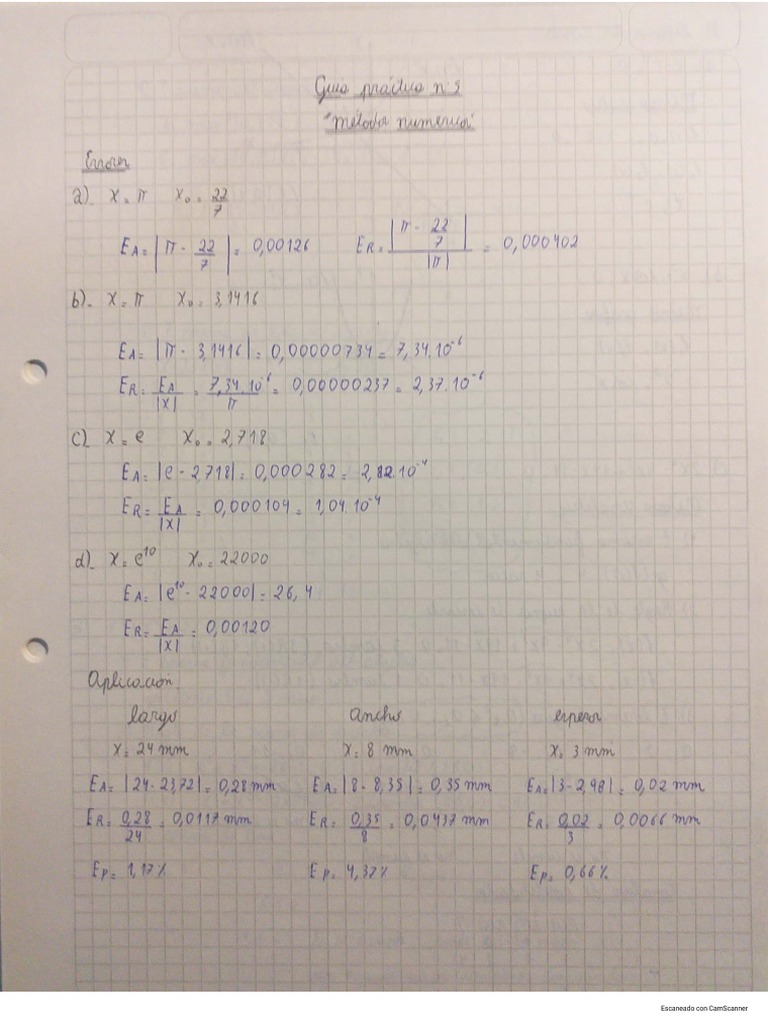 Guia práctica n°1
"Métodos numericos"
Errores
a)- X = π X₀ = 22/7
E_A = |π - 22/7| = 0,00126 E_R = |π - 22/7| / |π| = 0,000402
b)- X = π X₀ = 3,1416
E_A = |π - 3,1416| = 0,00000734 = 7,34.10⁻⁶
E_R = E_A/|X| = 7,34.10⁻⁶/π = 0,00000237 = 2,37.10⁻⁶
c)- X = e X₀ = 2,718
E_A = |e - 2,718| = 0,000282 = 2,82.10⁻⁴
E_R = E_A/|X| = 0,000104 = 1,04.10⁻⁴
d)- X = e¹⁰ X₀ = 22000
E_A = |e¹⁰ - 22000| = 26,4
E_R = E_A/|X| = 0,00120
Aplicacion
largo ancho espesor
X = 24 mm X = 8 mm X = 3 mm
E_A = |24 - 23,72| = 0,28 mm E_A = |8 - 8,35| = 0,35 mm E_A = |3 - 2,98| = 0,02 mm
E_R = 0,28/24 = 0,0117 mm E_R = 0,35/8 = 0,0437 mm E_R = 0,02/3 = 0,0066 mm
E_P = 1,17% E_P = 4,37% E_P = 0,66%
Escaneado con CamScanner